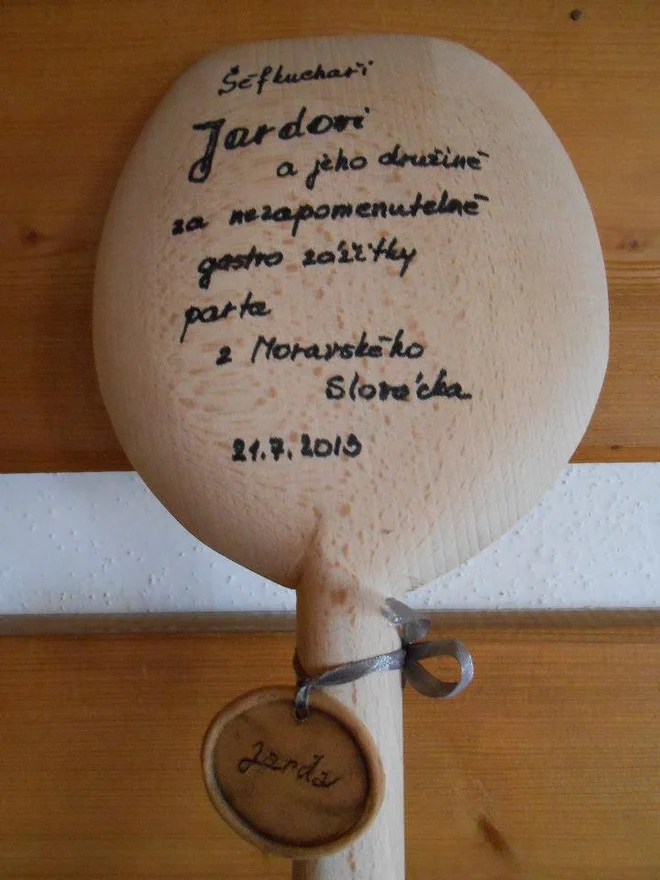 Šéfkuchaři
Jardovi
a jeho družině
za nezapomenutelné
gastro zážitky
parta
z Moravského
Slovácka
21.7.2013
Jarda